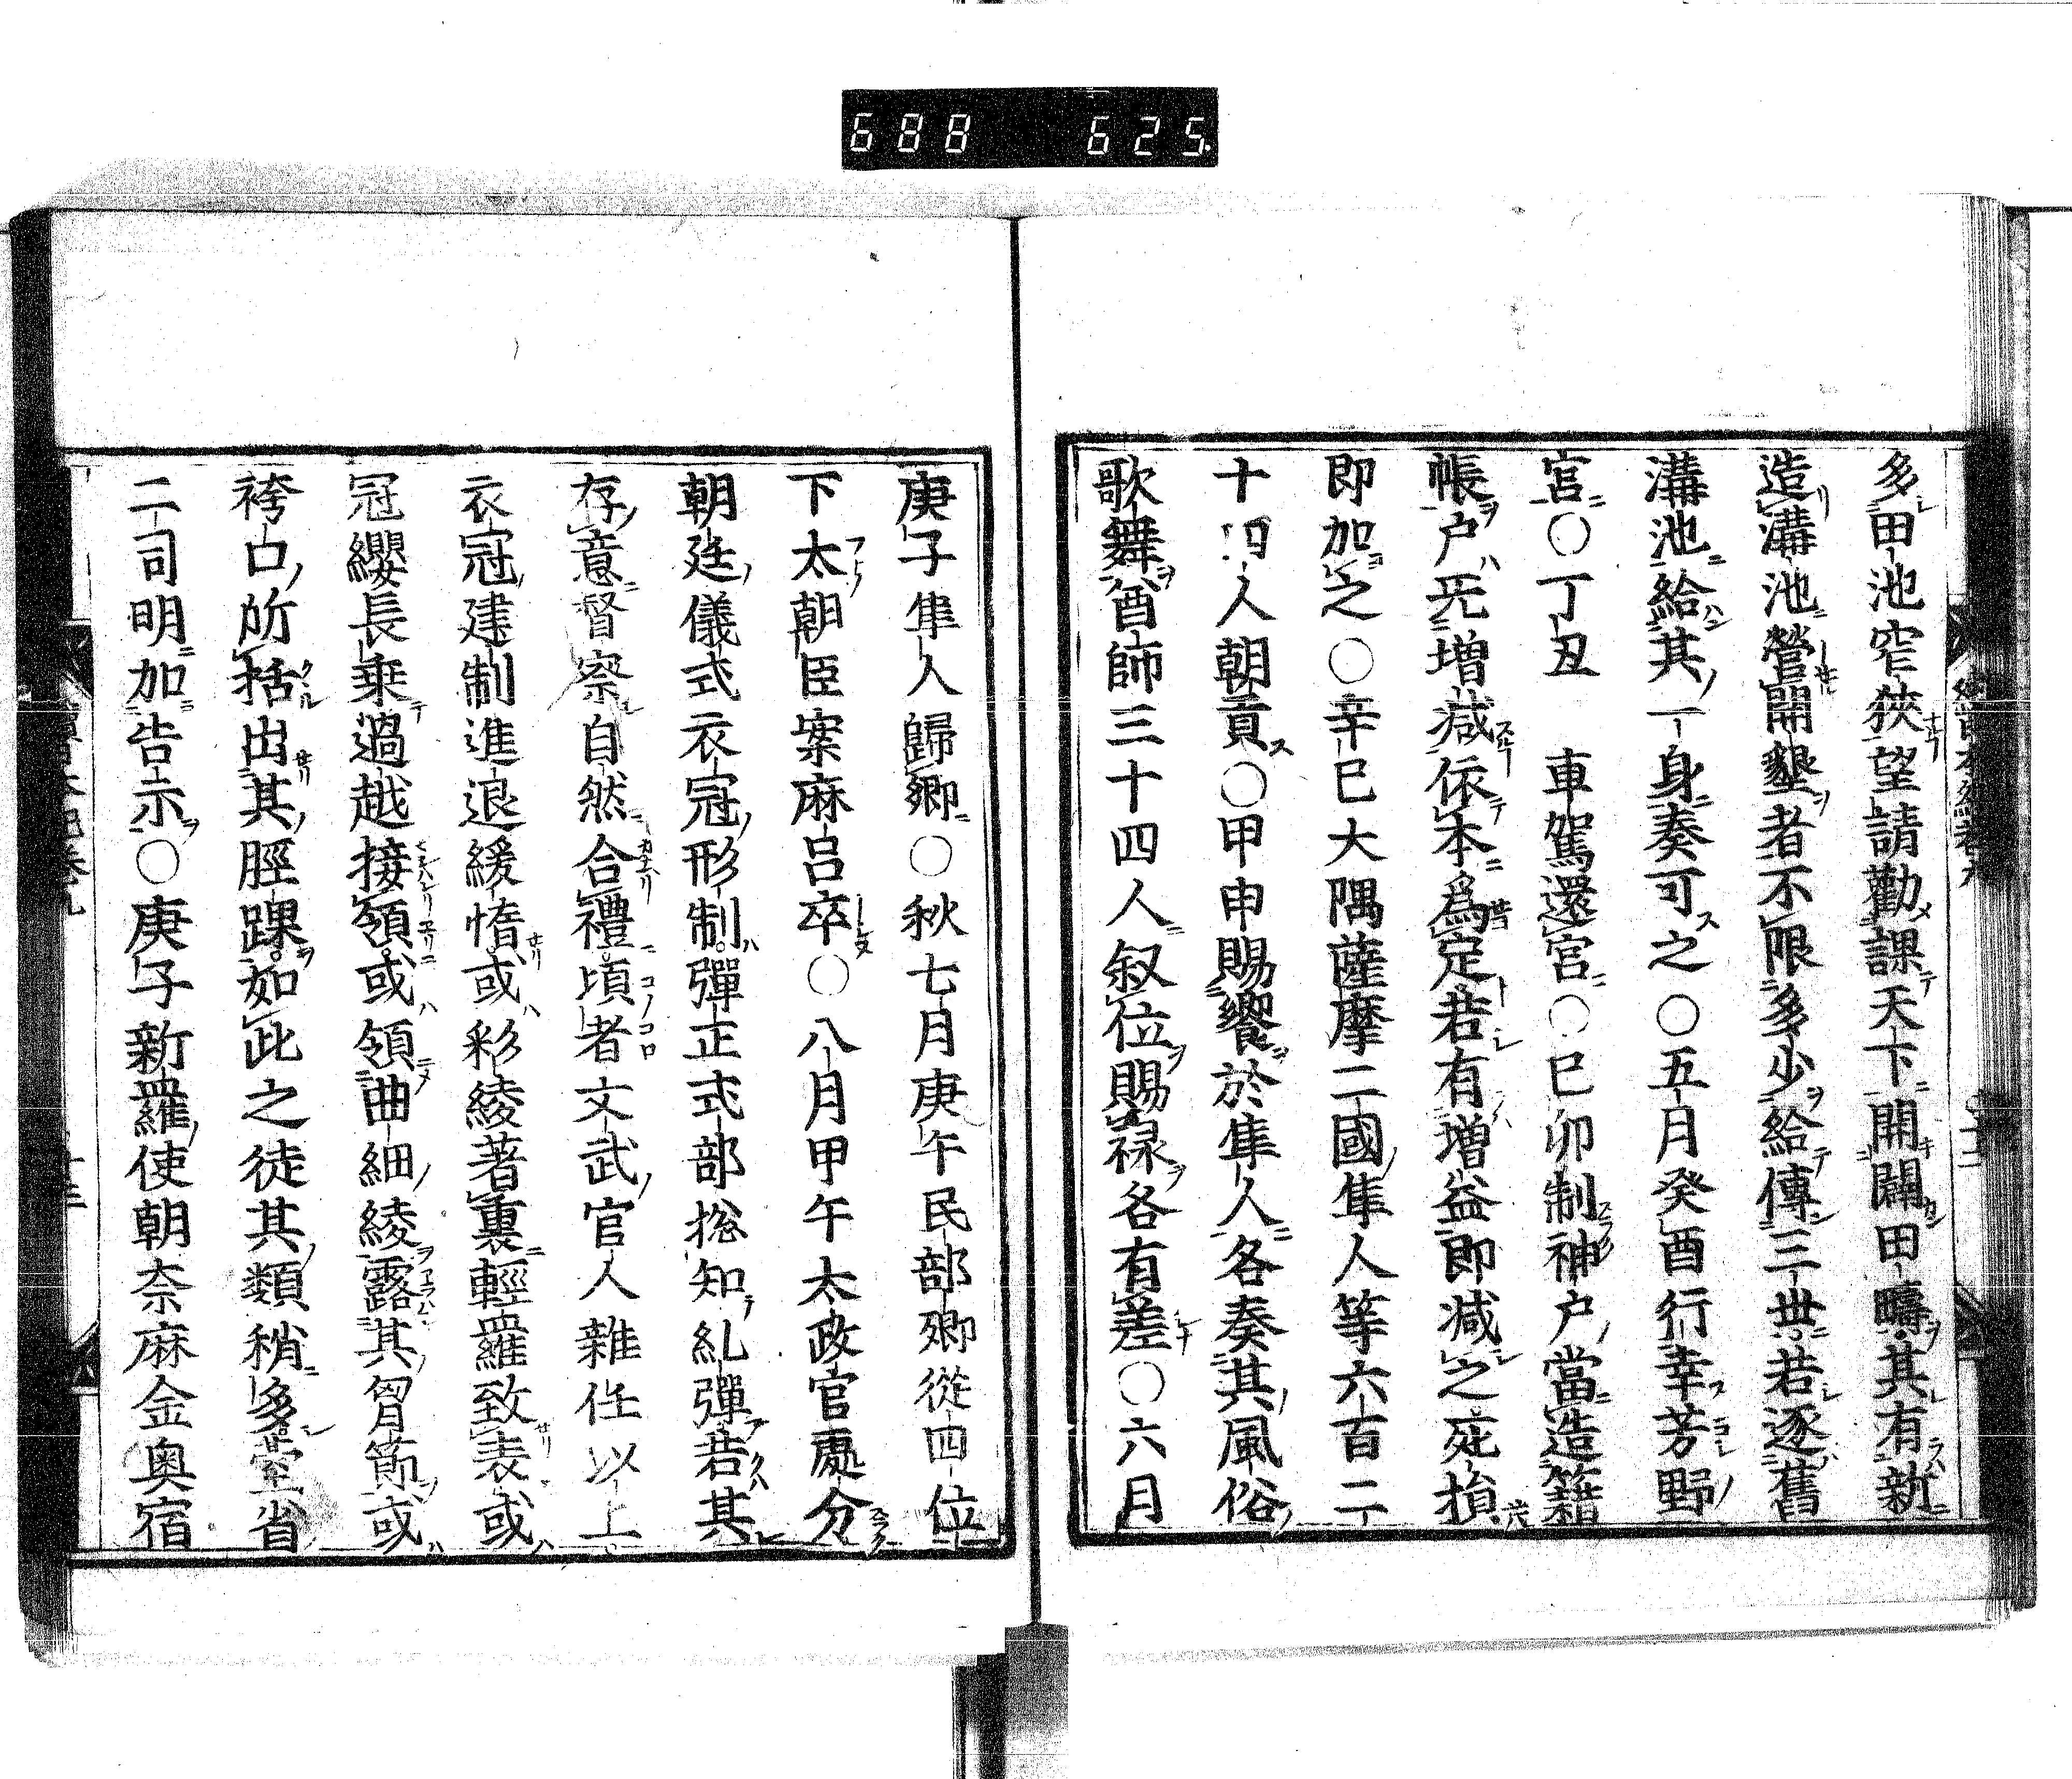 688 625.
多田池窄狹望請勸課天下開闢田疇其有新
造溝池營開墾者不限多少給傳三世若逐舊
溝池給其一身奏可之〇五月癸酉行幸芳野
宮〇丁丑 車駕還宮〇巳卯制神戸當造籍
帳戸无增減依本爲定若有增益即減之死損
即加之〇辛巳大隅薩摩二國隼人等六百二
十四人朝貢〇甲申賜饗於隼人各奏其風俗
歌舞酋師三十四人叙位賜禄各有差〇六月
庚子隼人歸郷〇秋七月庚午民部卿從四位
下太朝臣案麻呂卒〇八月甲午太政官處分
朝廷儀式衣冠形制彈正式部捴知糺彈若其
存意督察自然合禮頃者文武官人雜任以上
衣冠建制進退緩惰或彩綾著裏輕羅致表或
冠纓長乗過越接領或領曲細綾露其胷節或
袴口所括出其脛踝如此之徒其類稍多臺省
二司明加告示〇庚子新羅使朝奈麻金奥宿